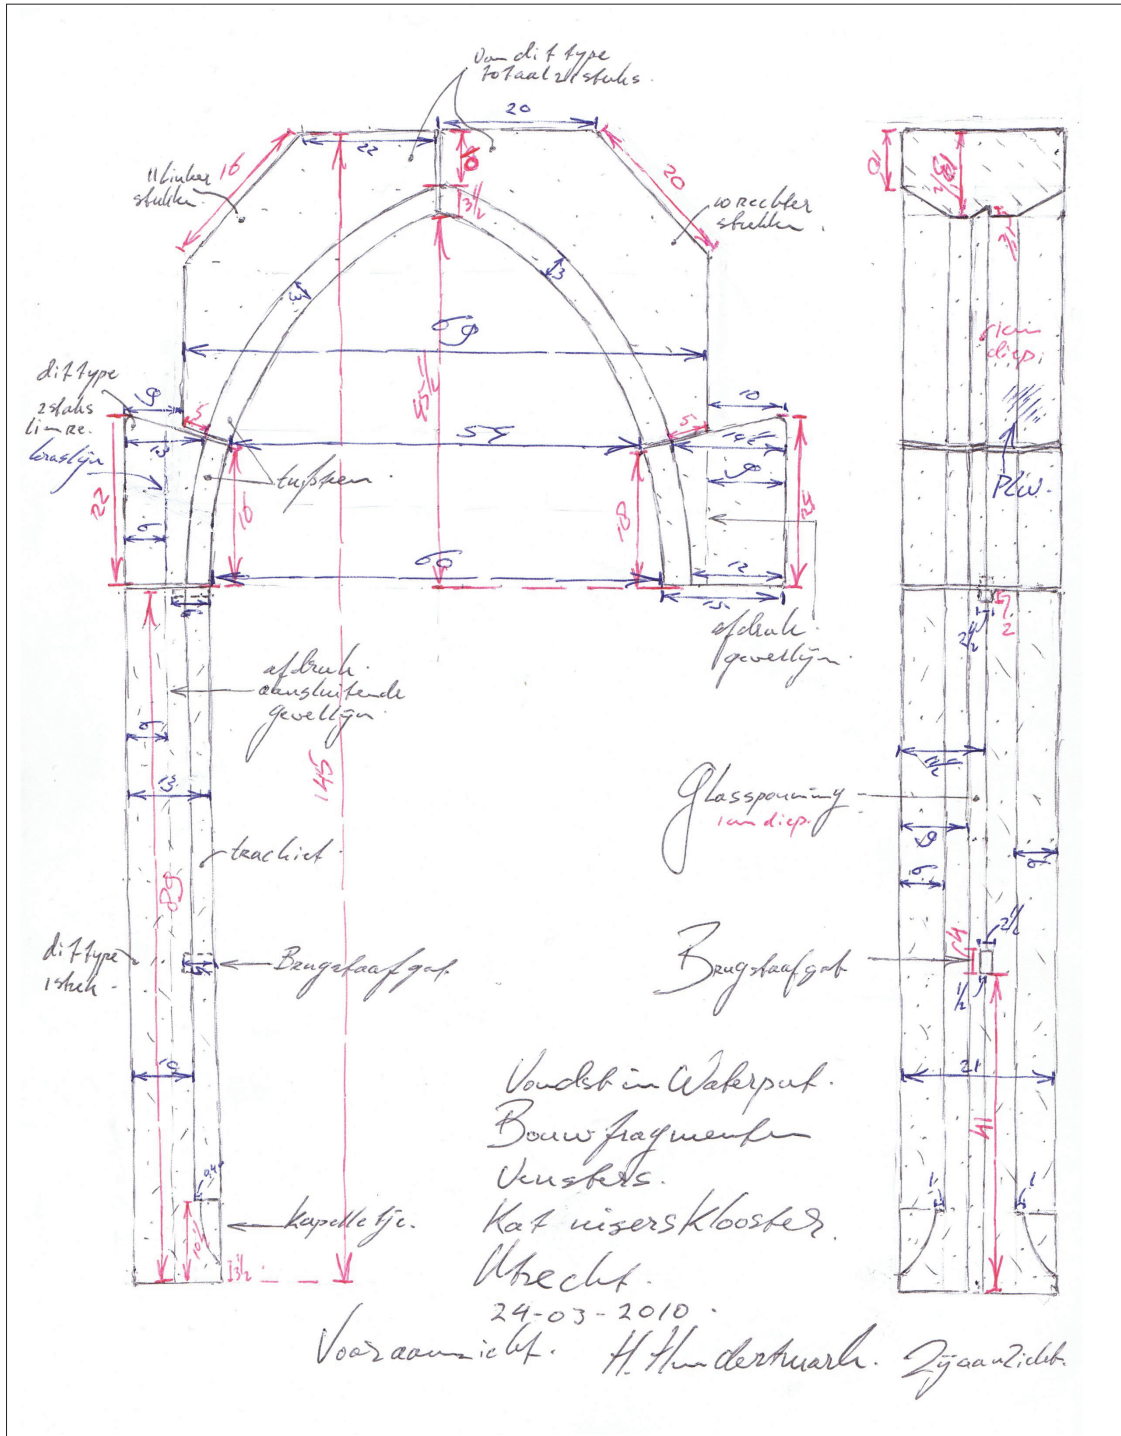 Van dit type
totaal 21 stuks.
20
22
16
20
10
3 1/2
11 linker
stukken
10 rechter
stukken
3
3
69
45 1/2
dit type
2 stuks
linke.
kraslijn
9
5
13
22
6
16
tufsteen
54
5
10
14 1/2
9
18
25
60
12
15
afdruk
gevellijn
afdruk
aansluitende
gevellijn
6
13
145
89
trachiet
dit type
1 stuk
Brugstaafgat
5
10
10 1/2
3 1/2
kapelletje.
10
1 cm
diep.
PLW.
2 1/2
2
Glassponning
1 cm diep.
9
6
6
4
2 1/2
Brugstaafgat
1/2
21
41
1
1
Vondst in Waterput.
Bouwfragmenten
Vensters.
Katuisersklooster
Utrecht.
24-03-2010.
Vooraanzicht.
H. Hundertmark.
Zijaanzicht.